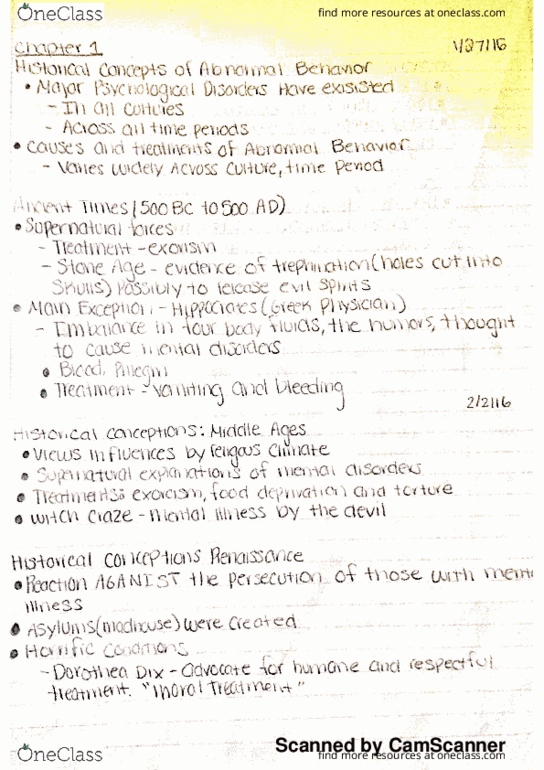 OneClass
find more resources at oneclass.com
Chapter 1
1/27/16
Historical Concepts of Abnormal Behavior
• Major Psychological Disorders Have exsisted
- In all cultures
- Across all time periods
• Causes and treatments of Abnormal Behavior
- Varies widely Across culture, time Period
Ancient Times (500 BC to 500 AD)
• Supernatural forces
- Treatment - exorism
- Stone Age - evidence of trephination (holes cut into
Skulls) Possibly to release evil spirits
• Main Exception - Hippocrates (Greek physician)
- Imbalance in four body fluids, the humors, thought
to cause mental disorders
• Blood, Phlegm
• Treatment - vomiting and bleeding
2/2/16
Historical conceptions: Middle Ages
• Views influences by religous climate
• Supernatural explanations of mental disorders
• Treatments: exorcism, food deprivation and torture
• witch craze - mental illness by the devil
Historical Conceptions Renaissance
• Reaction AGANIST the persecution of those with
illness
• Asylums (madhouse) were created
• Horrific conditions
- Dorothea Dix - advocate for humane and respectful
treatment. "Moral Treatment"
Scanned by CamScanner
OneClass
find more resources at oneclass.com